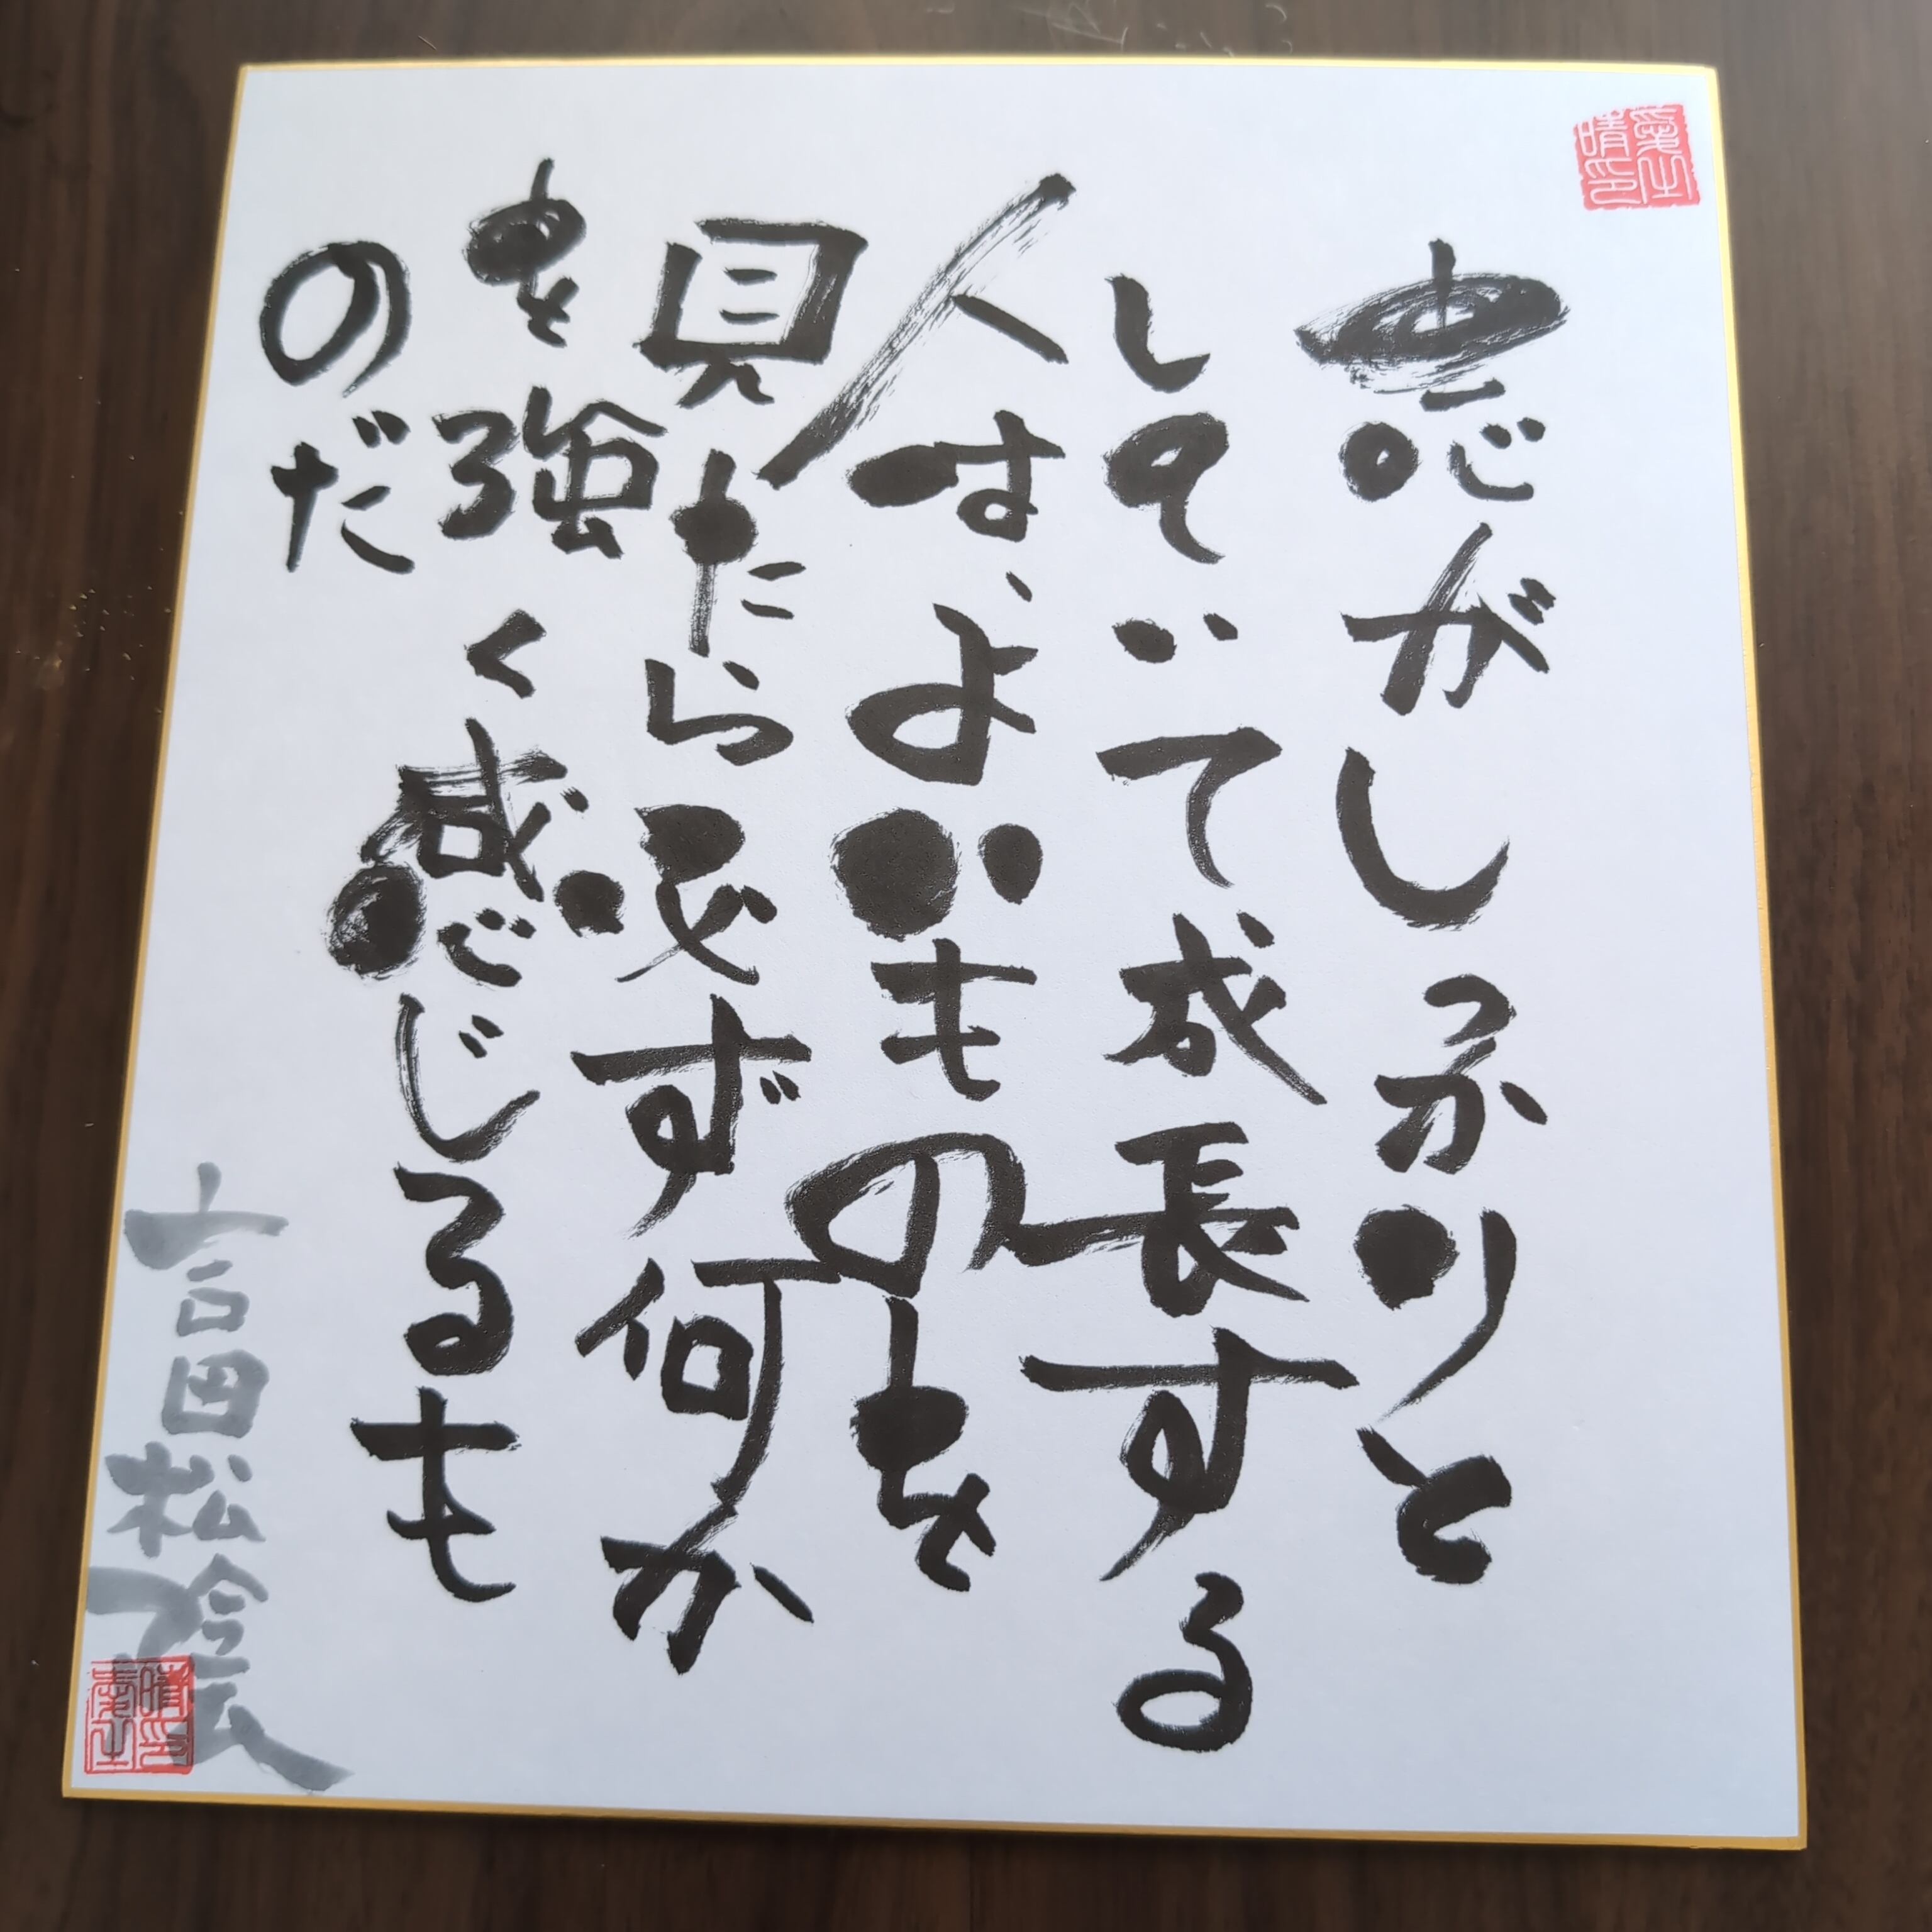 恵がしっかりと
していて成長する
人は、よいものを
見たら必ず何か
を強く感じるも
のだ
吉田松陰